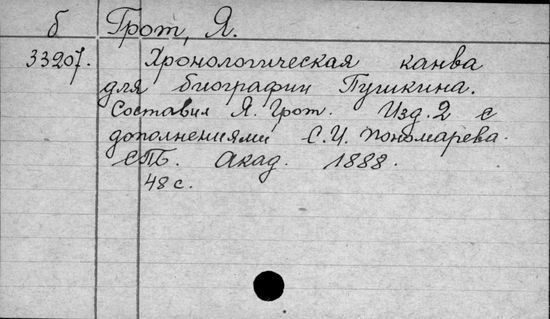 б Грот, Я.
33207. Хронологическая канва
для биографии Пушкина.
Составил Я. Грот. Изд. 2 с
дополнениями С.И. Пономарева.
СПБ. Акад. 1888.
48 с.